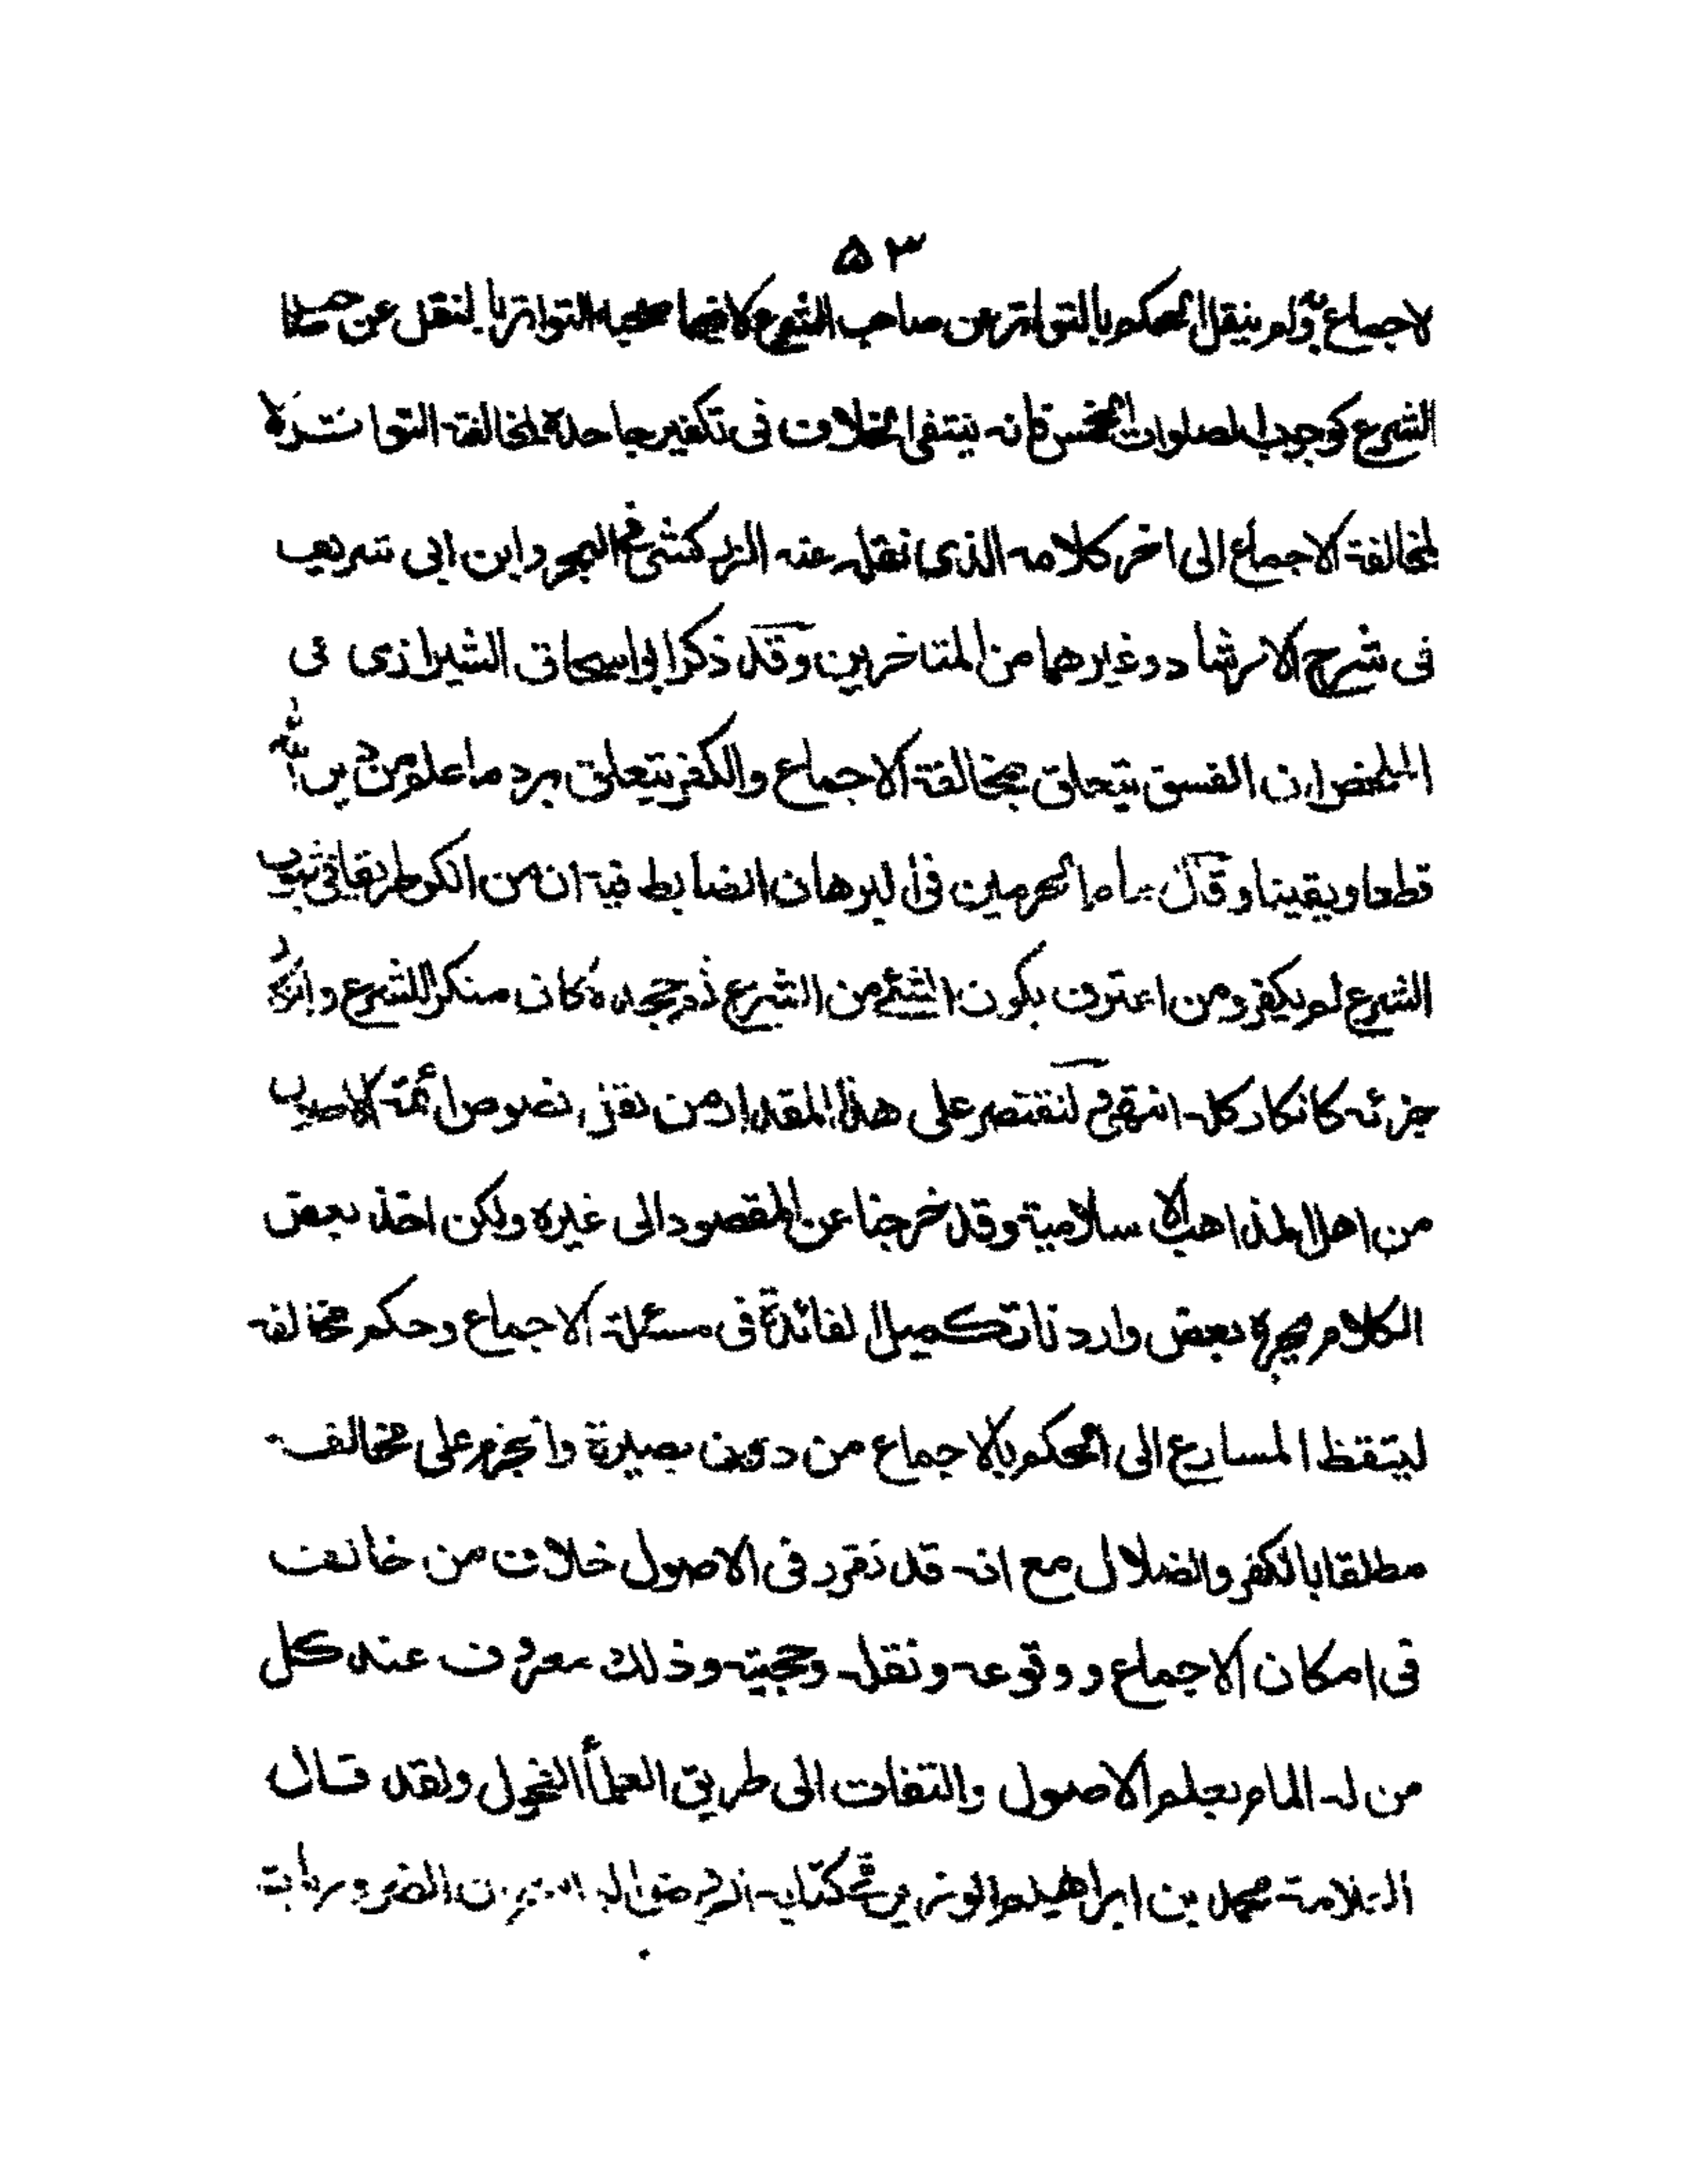 ٥٣
لاجماع به ولم ينقل الحكم بالتواتر عن صاحب الشرع لا فيما صحبه التواتر بالنقل عن صاحب
الشرع كوجوب الصلوات الخمس فانه ينتفى الخلاف فى تكفير جاحده لمخالفة التواتر لا
لمخالفة الاجماع الى اخر كلامه الذى نقله عنه الزركشى فى البحر وابن ابى شريف
فى شرح الارشاد وغيرهما من المتاخرين وقد ذكر ابو اسحاق الشيرازى فى
الملخص ان الفسق يتعلق بمخالفة الاجماع والكفر يتعلق برد ما علم من دين الله
قطعا ويقينا وقال امام الحرمين فى البرهان الضابط فيه ان من انكر طريقا فى ثبوت
الشرع لم يكفر ومن اعترف بكون الشئ من الشرع ثم جحده كان منكرا للشرع وانكار
جزئه كانكار كله انتهى ولنقتصر على هذا المقدار من نقل نصوص ائمة الاصول
من اهل المذاهب الاسلامية وقد خرجنا عن المقصود الى غيره ولكن اخذ بعض
الكلام بحجزة بعض واردنا تكميل الفائدة فى مسئلة الاجماع وحكم مخالفه
ليتقظ المسارع الى الحكم بالاجماع من دون بصيرة والجزم على مخالفه
مطلقا بالكفر والضلال مع انه قد تقرر فى الاصول خلاف من خالف
فى امكان الاجماع ووقوعه ونقله وحجيته وذلك معروف عند كل
من له المام بعلم الاصول والتفات الى طريق العلمأ الفحول ولقد قال
العلامة محمد بن ابراهيم الوزير فى كتابه ان الضروريات